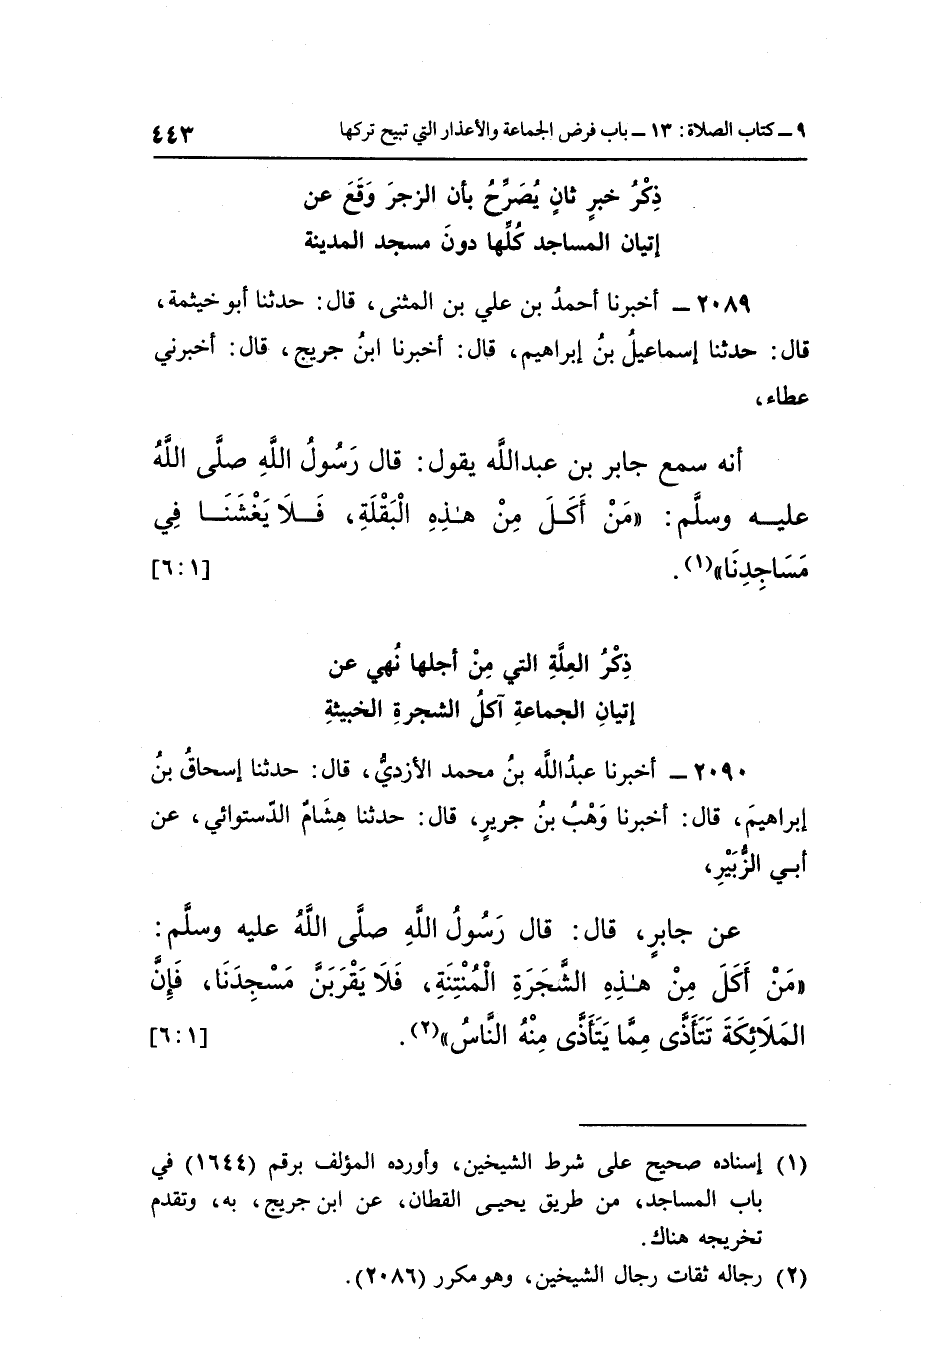 ٩ ــ كتاب الصلاة: ١٣ ــ باب فرض الجماعة والأعذار التي تبيح تركها ٤٤٣
ذِكْرُ خبرٍ ثانٍ يُصَرِّحُ بأن الزجرَ وَقَعَ عن
إتيان المساجد كُلِّها دونَ مسجد المدينة
٢٠٨٩ ــ أخبرنا أحمدُ بن علي بن المثنى، قال: حدثنا أبو خيثمة،
قال: حدثنا إسماعيلُ بنُ إبراهيم، قال: أخبرنا ابنُ جريج، قال: أخبرني
عطاء،
أنه سمع جابر بن عبدالله يقول: قال رَسُولُ اللَّهِ صلَّى اللَّهُ
عليـه وسلَّم: «مَنْ أَكَـلَ مِنْ هـٰذِهِ الْبَقْلَةِ، فَـلَا يَغْشَنَـا فِي
مَسَاجِدِنَا»(١). [٦:١]
ذِكْرُ العِلَّةِ التي مِنْ أجلها نُهي عن
إتيانِ الجماعةِ آكلُ الشجرةِ الخبيثةِ
٢٠٩٠ ــ أخبرنا عبدُاللَّه بنُ محمد الأزديُّ، قال: حدثنا إسحاقُ بنُ
إبراهيمَ، قال: أخبرنا وَهْبُ بنُ جريرٍ، قال: حدثنا هِشَامُ الدّستوائي، عن
أبـي الزُّبَيْرِ،
عن جابرٍ، قال: قال رَسُولُ اللَّهِ صلَّى اللَّهُ عليه وسلَّم:
«مَنْ أَكَلَ مِنْ هـٰذِهِ الشَّجَرَةِ الْمُنْتِنَةِ، فَلَا يَقْرَبَنَّ مَسْجِدَنَا، فَإِنَّ
المَلَائِكَةَ تَتَأَذَّى مِمَّا يَتَأَذَّى مِنْهُ النَّاسُ»(٢). [٦:١]
(١) إسناده صحيح على شرط الشيخين، وأورده المؤلف برقم (١٦٤٤) في
باب المساجد، من طريق يحيـى القطان، عن ابن جريج، به، وتقدم
تخريجه هناك.
(٢) رجاله ثقات رجال الشيخين، وهو مكرر (٢٠٨٦).